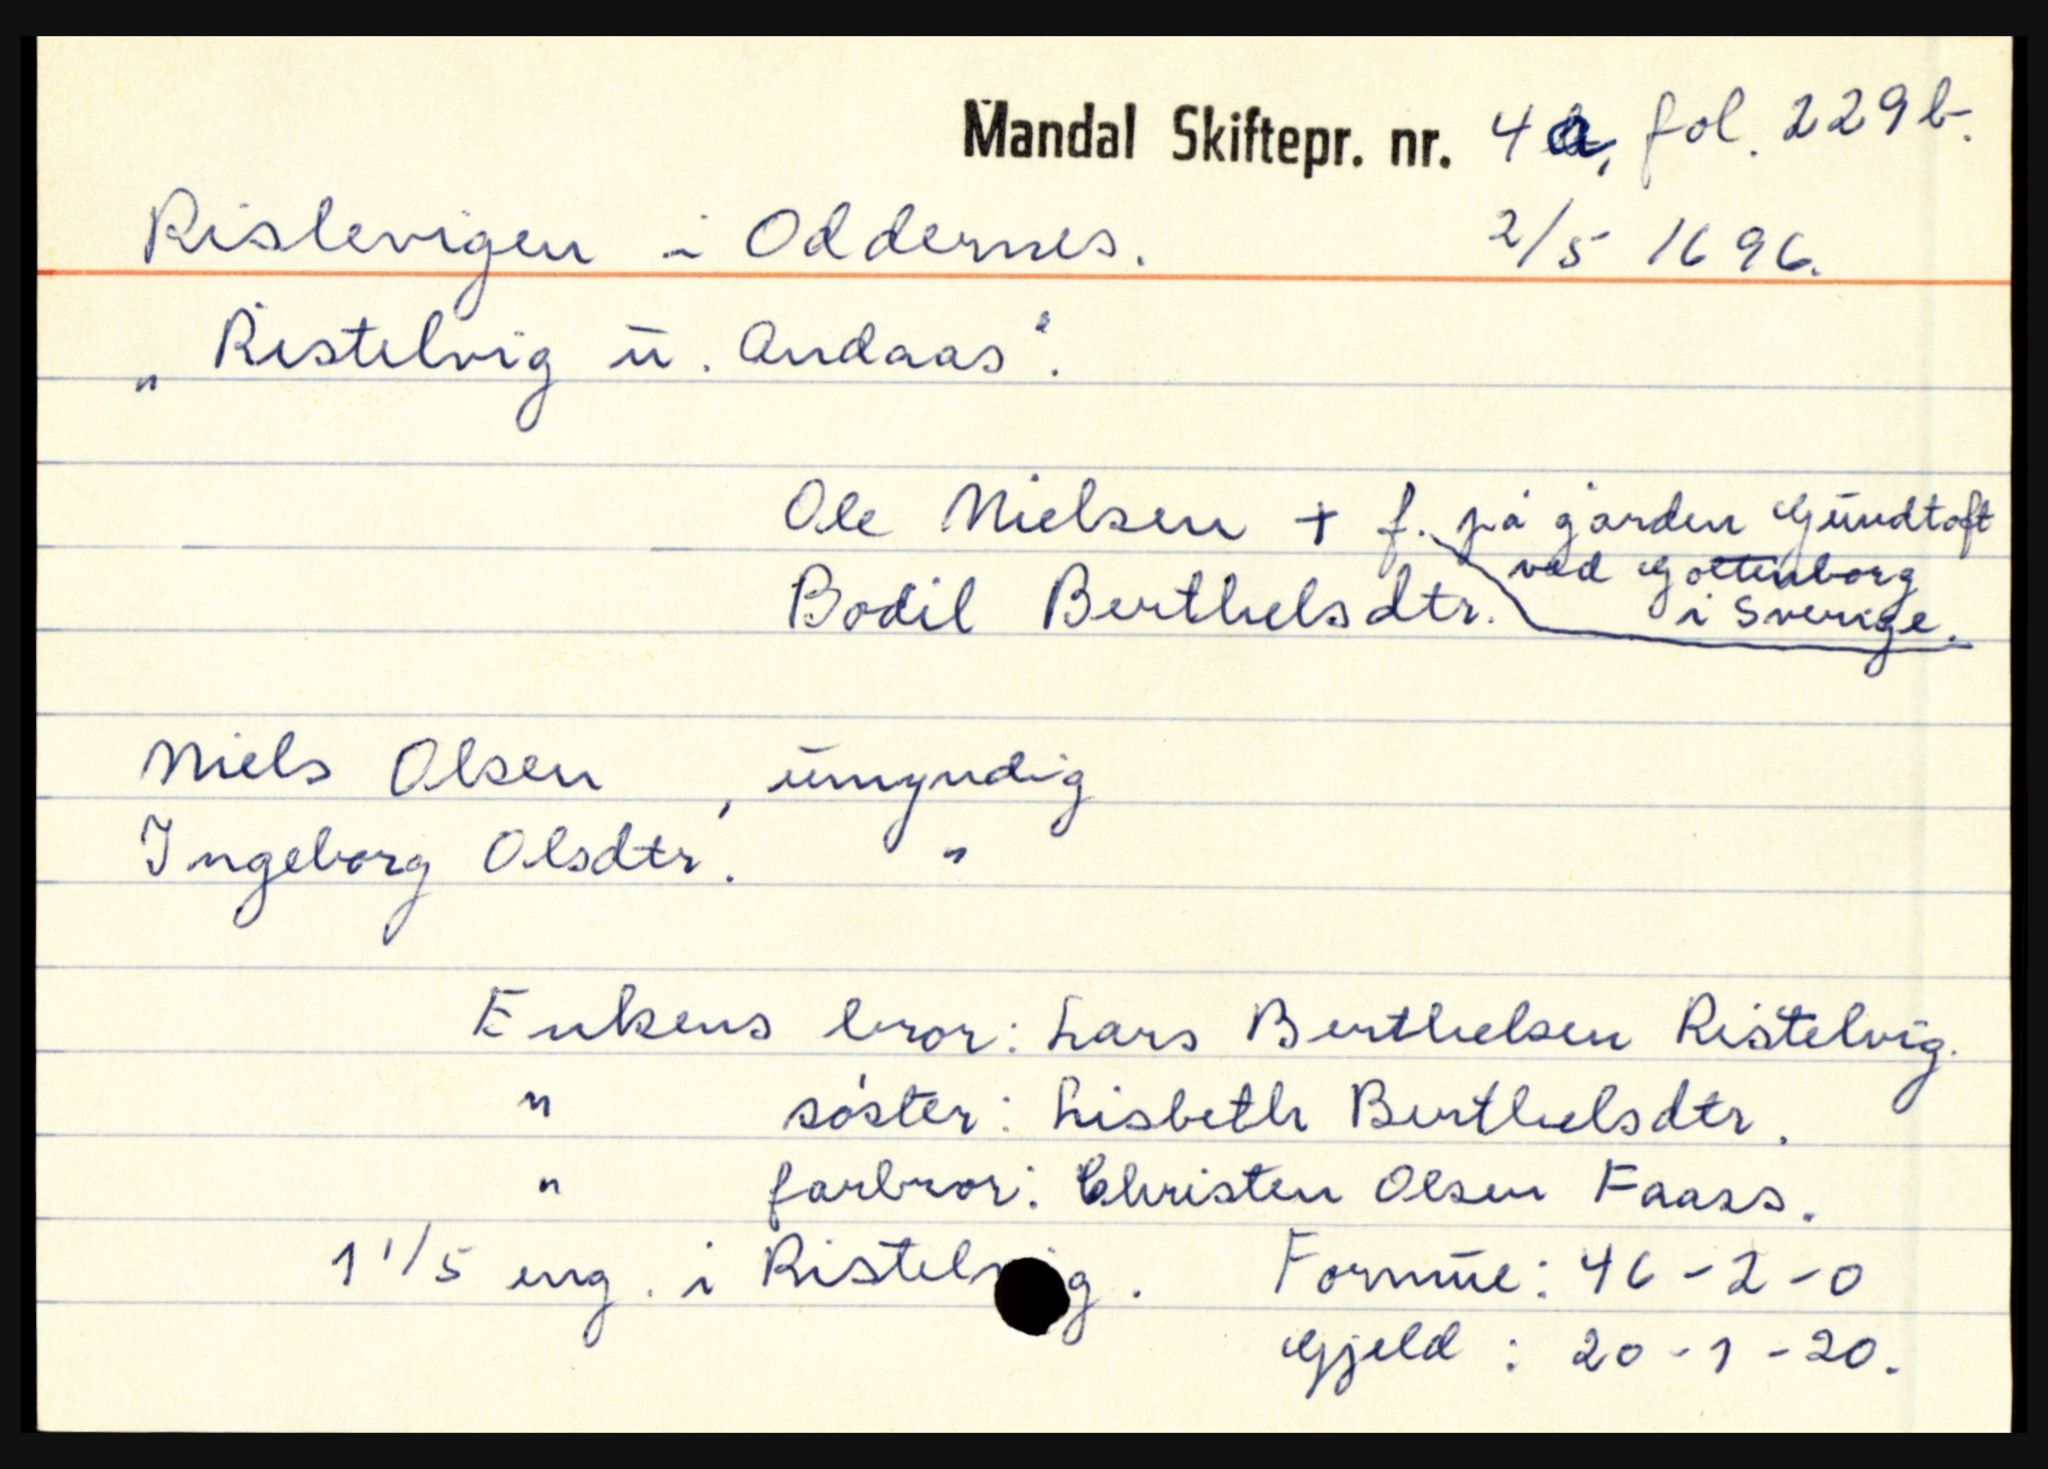 Mandal Skiftepr. nr. 4a, fol. 229b.
Rislevigen i Oddernes. 2/5 1696.
„Ristelvig u. Andaas".
Ole Nielsen + f. på gården Gundtoft
ved Gottenborg
Bodil Berthelsdtr. i Sverige.
Niels Olsen, umyndig
Ingeborg Olsdtr. "
Enkens bror: Lars Berthelsen Ristelvig.
" söster: Lisbeth Berthelsdtr.
" farbror: Christen Olsen Faass.
1 1/5 eng. i Ristelvig. Formue: 46-2-0
Gjeld: 20-1-20.